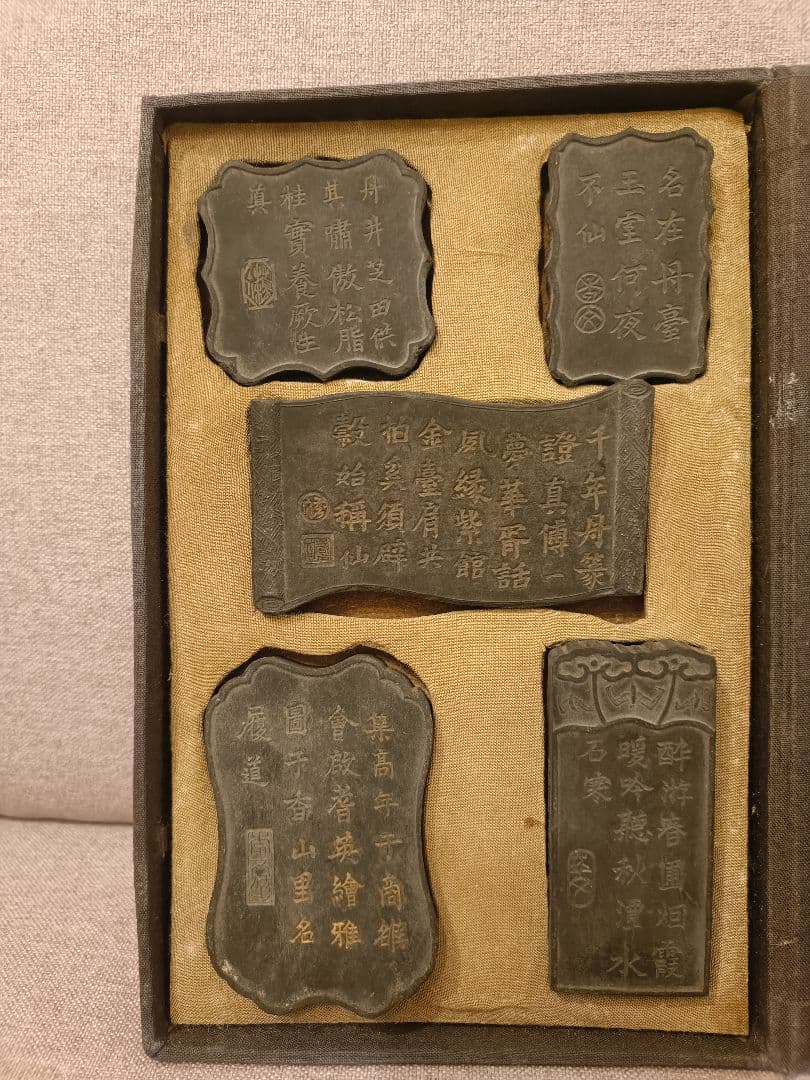 丹井芝田供
其嘯傲松脂
桂實養厥性
真
名在丹臺
玉室何夜
不仙
千年丹篆
證真傅一
夢華胥話
夙緣紫館
金臺肩共
拍奚須辟
穀始稱仙
集高年于商雒
會啟耆英繪雅
圖乎香山里名
履道
醉游春圃烟霞
暖吟聽秋潭水
石寒